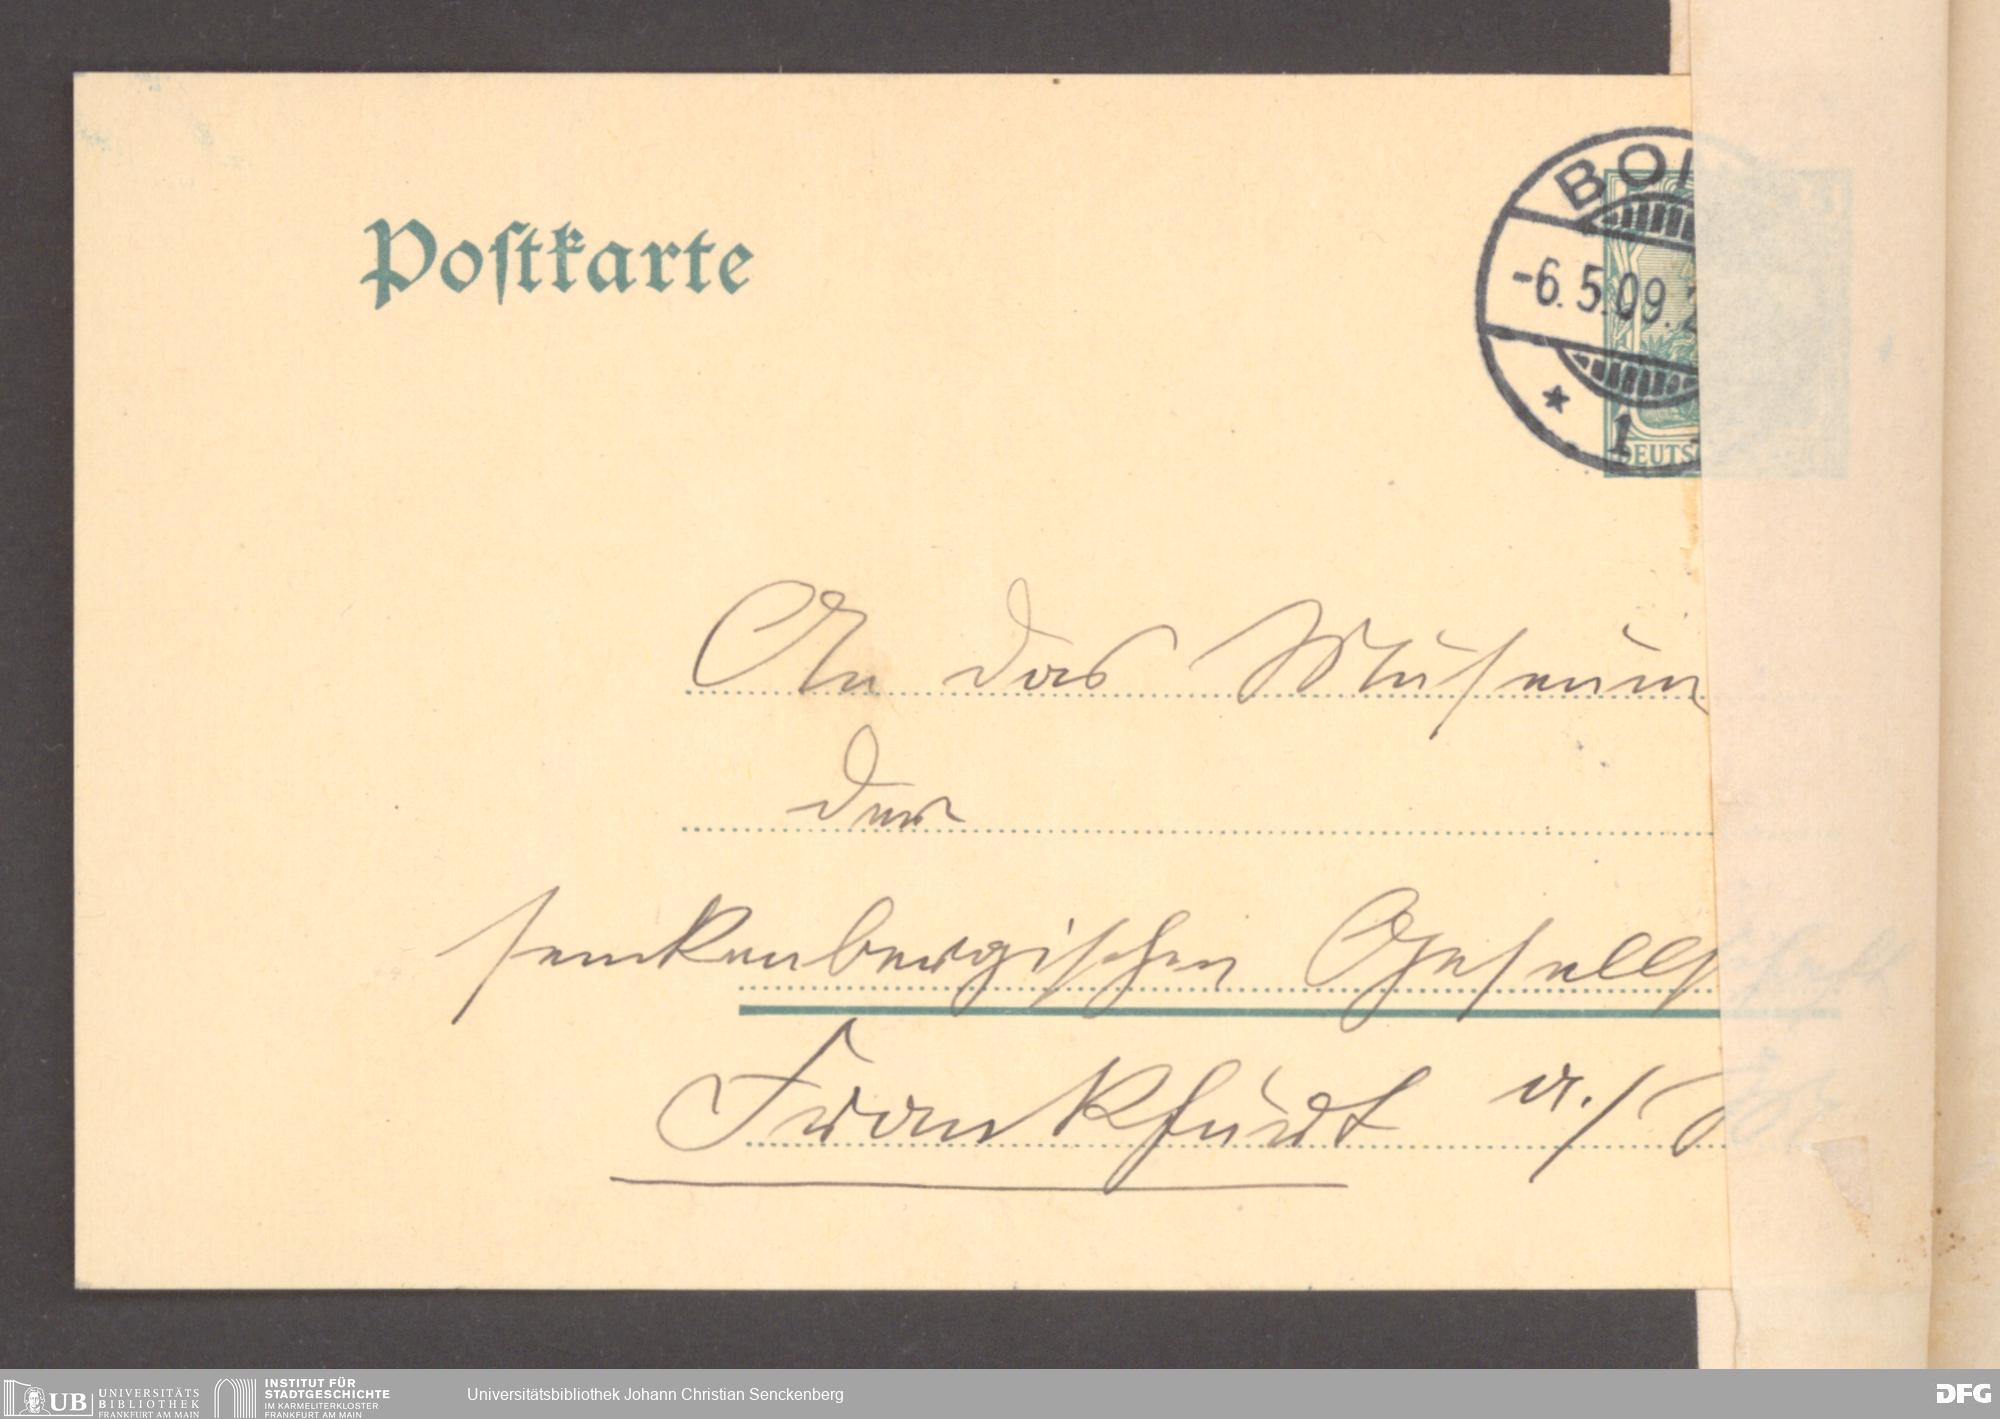 Postkarte
BON
-6.5.09.2
* 1
DEUTSC
An das Museum
der
senckenbergischen Gesellschaft
Frankfurt a./M
UB UNIVERSITÄTS
BIBLIOTHEK
FRANKFURT AM MAIN
INSTITUT FÜR
STADTGESCHICHTE
IM KARMELITERKLOSTER
FRANKFURT AM MAIN
Universitätsbibliothek Johann Christian Senckenberg
DFG